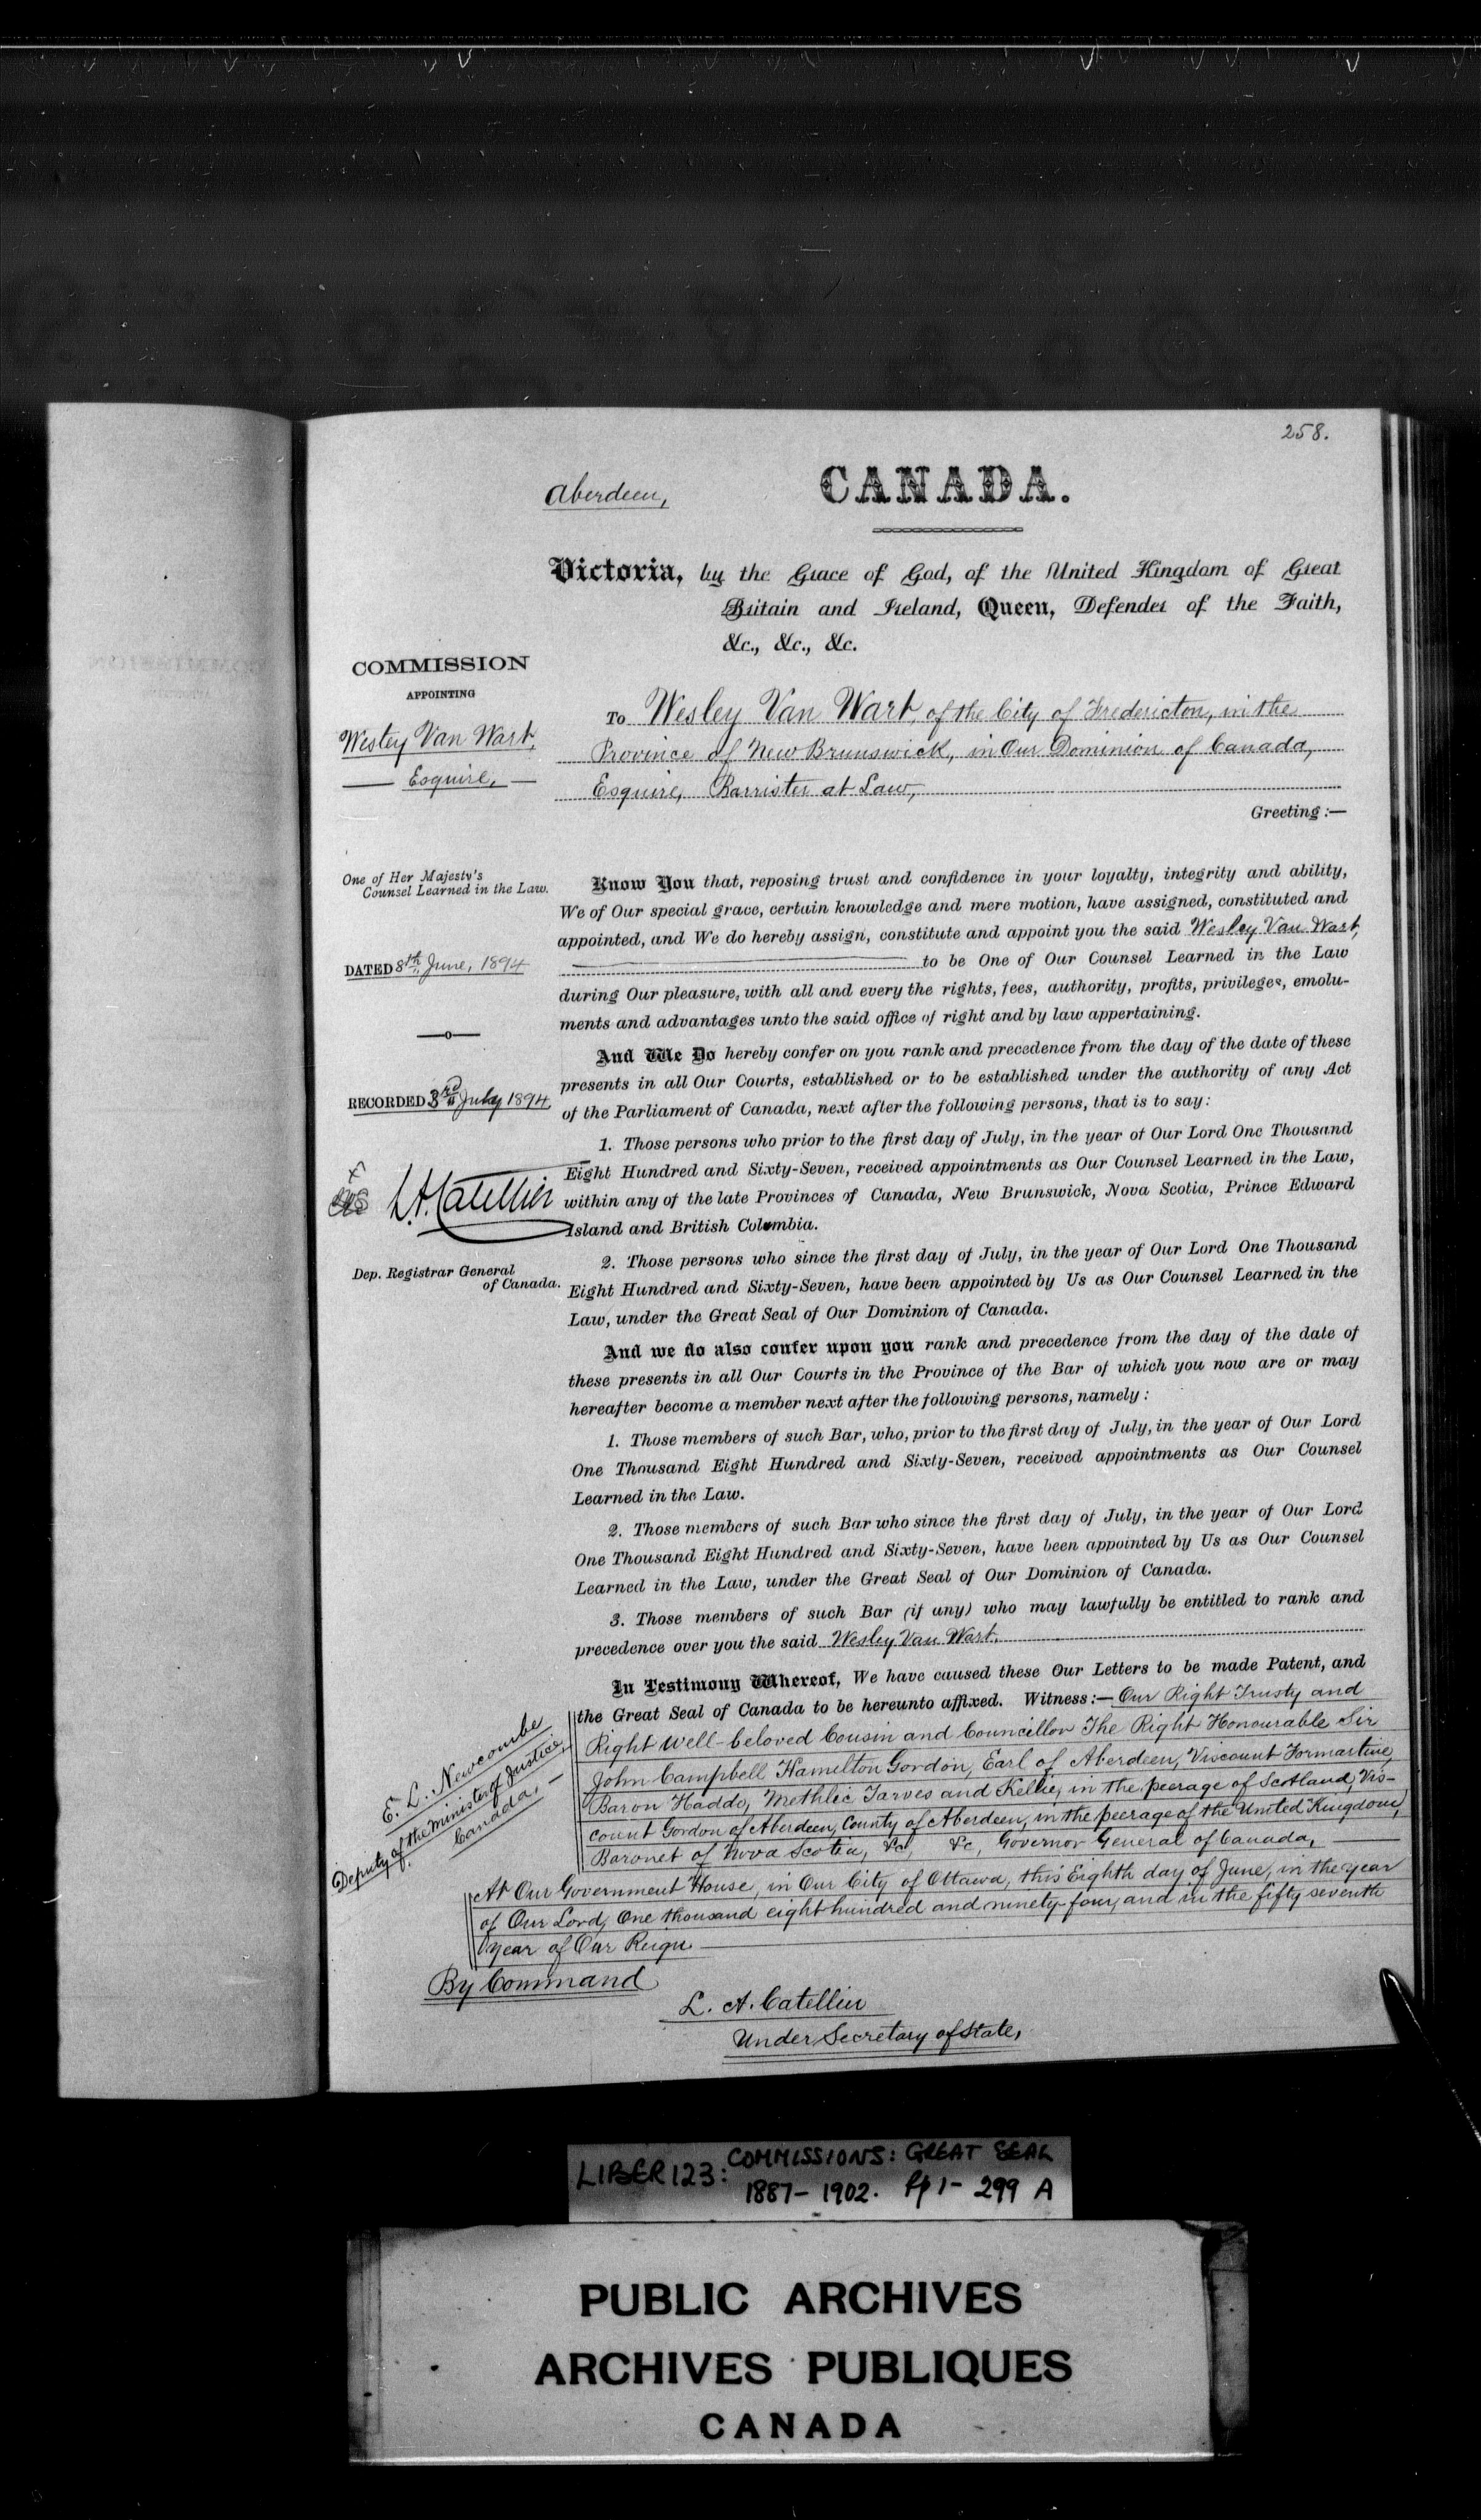 258.
Aberdeen,
CANADA.
Victoria, by the Grace of God, of the United Kingdom of Great
Britain and Ireland, Queen, Defender of the Faith,
&c., &c., &c.
COMMISSION
APPOINTING
Wesley Van Wart,
Esquire,
To Wesley Van Wart, of the City of Fredericton, in the
Province of New Brunswick, in Our Dominion of Canada,
Esquire, Barrister at Law,
Greeting :—
One of Her Majesty's
Counsel Learned in the Law.
DATED 8th June, 1894
—o—
RECORDED 3rd July 1894
L.A. Catellier
Dep. Registrar General
of Canada.
Know You that, reposing trust and confidence in your loyalty, integrity and ability,
We of Our special grace, certain knowledge and mere motion, have assigned, constituted and
appointed, and We do hereby assign, constitute and appoint you the said Wesley Van Wart,
to be One of Our Counsel Learned in the Law
during Our pleasure, with all and every the rights, fees, authority, profits, privileges, emolu-
ments and advantages unto the said office of right and by law appertaining.
And We Do hereby confer on you rank and precedence from the day of the date of these
presents in all Our Courts, established or to be established under the authority of any Act
of the Parliament of Canada, next after the following persons, that is to say:
1. Those persons who prior to the first day of July, in the year of Our Lord One Thousand
Eight Hundred and Sixty-Seven, received appointments as Our Counsel Learned in the Law,
within any of the late Provinces of Canada, New Brunswick, Nova Scotia, Prince Edward
Island and British Columbia.
2. Those persons who since the first day of July, in the year of Our Lord One Thousand
Eight Hundred and Sixty-Seven, have been appointed by Us as Our Counsel Learned in the
Law, under the Great Seal of Our Dominion of Canada.
And we do also confer upon you rank and precedence from the day of the date of
these presents in all Our Courts in the Province of the Bar of which you now are or may
hereafter become a member next after the following persons, namely :
1. Those members of such Bar, who, prior to the first day of July, in the year of Our Lord
One Thousand Eight Hundred and Sixty-Seven, received appointments as Our Counsel
Learned in the Law.
2. Those members of such Bar who since the first day of July, in the year of Our Lord
One Thousand Eight Hundred and Sixty-Seven, have been appointed by Us as Our Counsel
Learned in the Law, under the Great Seal of Our Dominion of Canada.
3. Those members of such Bar (if any) who may lawfully be entitled to rank and
precedence over you the said Wesley Van Wart.
In Testimony Whereof, We have caused these Our Letters to be made Patent, and
the Great Seal of Canada to be hereunto affixed. Witness:— Our Right Trusty and
Right Well-beloved Cousin and Councillor The Right Honourable Sir
John Campbell Hamilton Gordon, Earl of Aberdeen, Viscount Formartine,
Baron Haddo, Methlic Tarves and Kellie, in the peerage of Scotland, Vis-
count Gordon of Aberdeen, County of Aberdeen, in the peerage of the United Kingdom,
Baronet of Nova Scotia, &c, &c, Governor General of Canada,
E. L. Newcombe
Deputy of the Minister of Justice,
Canada.
At Our Government House, in Our City of Ottawa, this Eighth day of June, in the year
of Our Lord, One thousand eight hundred and ninety-four, and in the fifty seventh
year of Our Reign.
By Command
L. A. Catellier
Under Secretary of State,
LIBER 123: COMMISSIONS: GREAT SEAL
1887-1902. Pp 1-299 A
PUBLIC ARCHIVES
ARCHIVES PUBLIQUES
CANADA